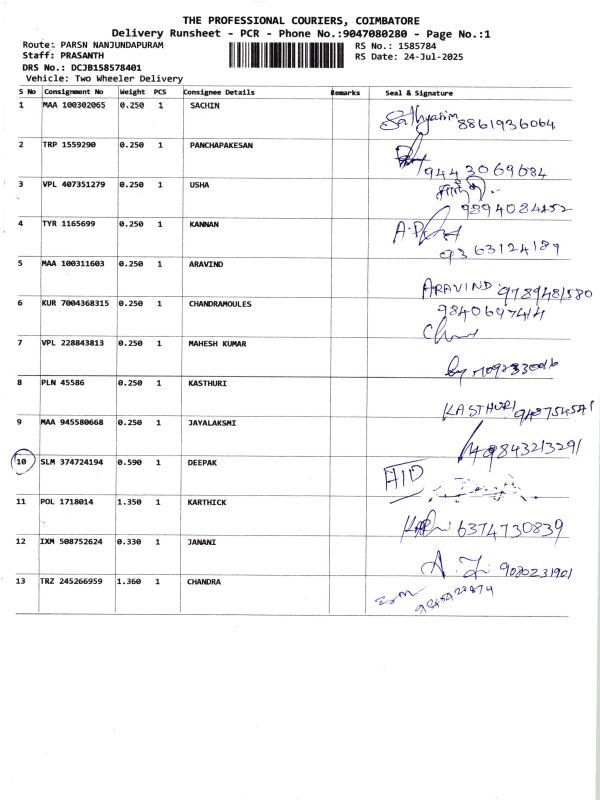 THE PROFESSIONAL COURIERS, COIMBATORE
Delivery Runsheet - PCR - Phone No.:9047080280 - Page No.:1
Route: PARSN NANJUNDAPURAM RS No.: 1585784
Staff: PRASANTH RS Date: 24-Jul-2025
DRS No.: DCJB158578401
Vehicle: Two Wheeler Delivery
S No Consignment No Weight PCS Consignee Details Remarks Seal & Signature
1 MAA 100302065 0.250 1 SACHIN
8861936064
2 TRP 1559290 0.250 1 PANCHAPAKESAN
9443069684
3 VPL 407351279 0.250 1 USHA
9894084152
4 TYR 1165699 0.250 1 KANNAN
9363124189
5 MAA 100311603 0.250 1 ARAVIND
ARAVIND 9789481580
6 KUR 7004368315 0.250 1 CHANDRAMOULES
7 VPL 228843813 0.250 1 MAHESH KUMAR
8 PLN 45586 0.250 1 KASTHURI
KASTHURI
9 MAA 945580668 0.250 1 JAYALAKSMI
9843213291
10 SLM 374724194 0.590 1 DEEPAK
11 POL 1718014 1.350 1 KARTHICK
6374730839
12 IXM 508752624 0.330 1 JANANI
9080231901
13 TRZ 245266959 1.360 1 CHANDRA